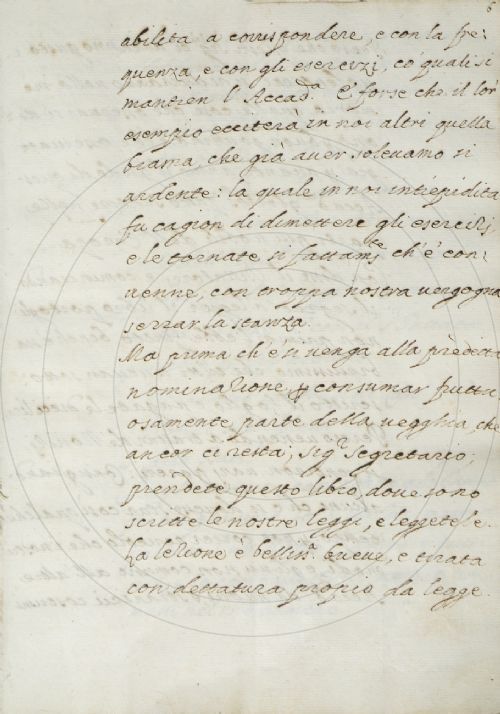 6
abilita a corrispondere, e con la fre-
quenza, e con gli esercizj, co' quali si
mantien l'Accad.a E forse che il lor
esempio ecciterà in noi altri quella
brama, che già aver solevamo sì
ardente: la quale in noi intiepidita
fu cagion di dimettere gli esercizj,
e le tornate sì fattam.te ch'è con-
uenne, con troppa nostra vergogna
serrar la stanza.
Ma prima ch'e' si venga alla predetta
nominazione p consumar frutta
osamente parte della vegghia, che
ancor ci resta; sig.r segretario,
prendete questo libro, dove sono
scritte le nostre leggi, e leggetele.
La lezione è bellin.a breve, e tirata
con dettatura propio da legge.